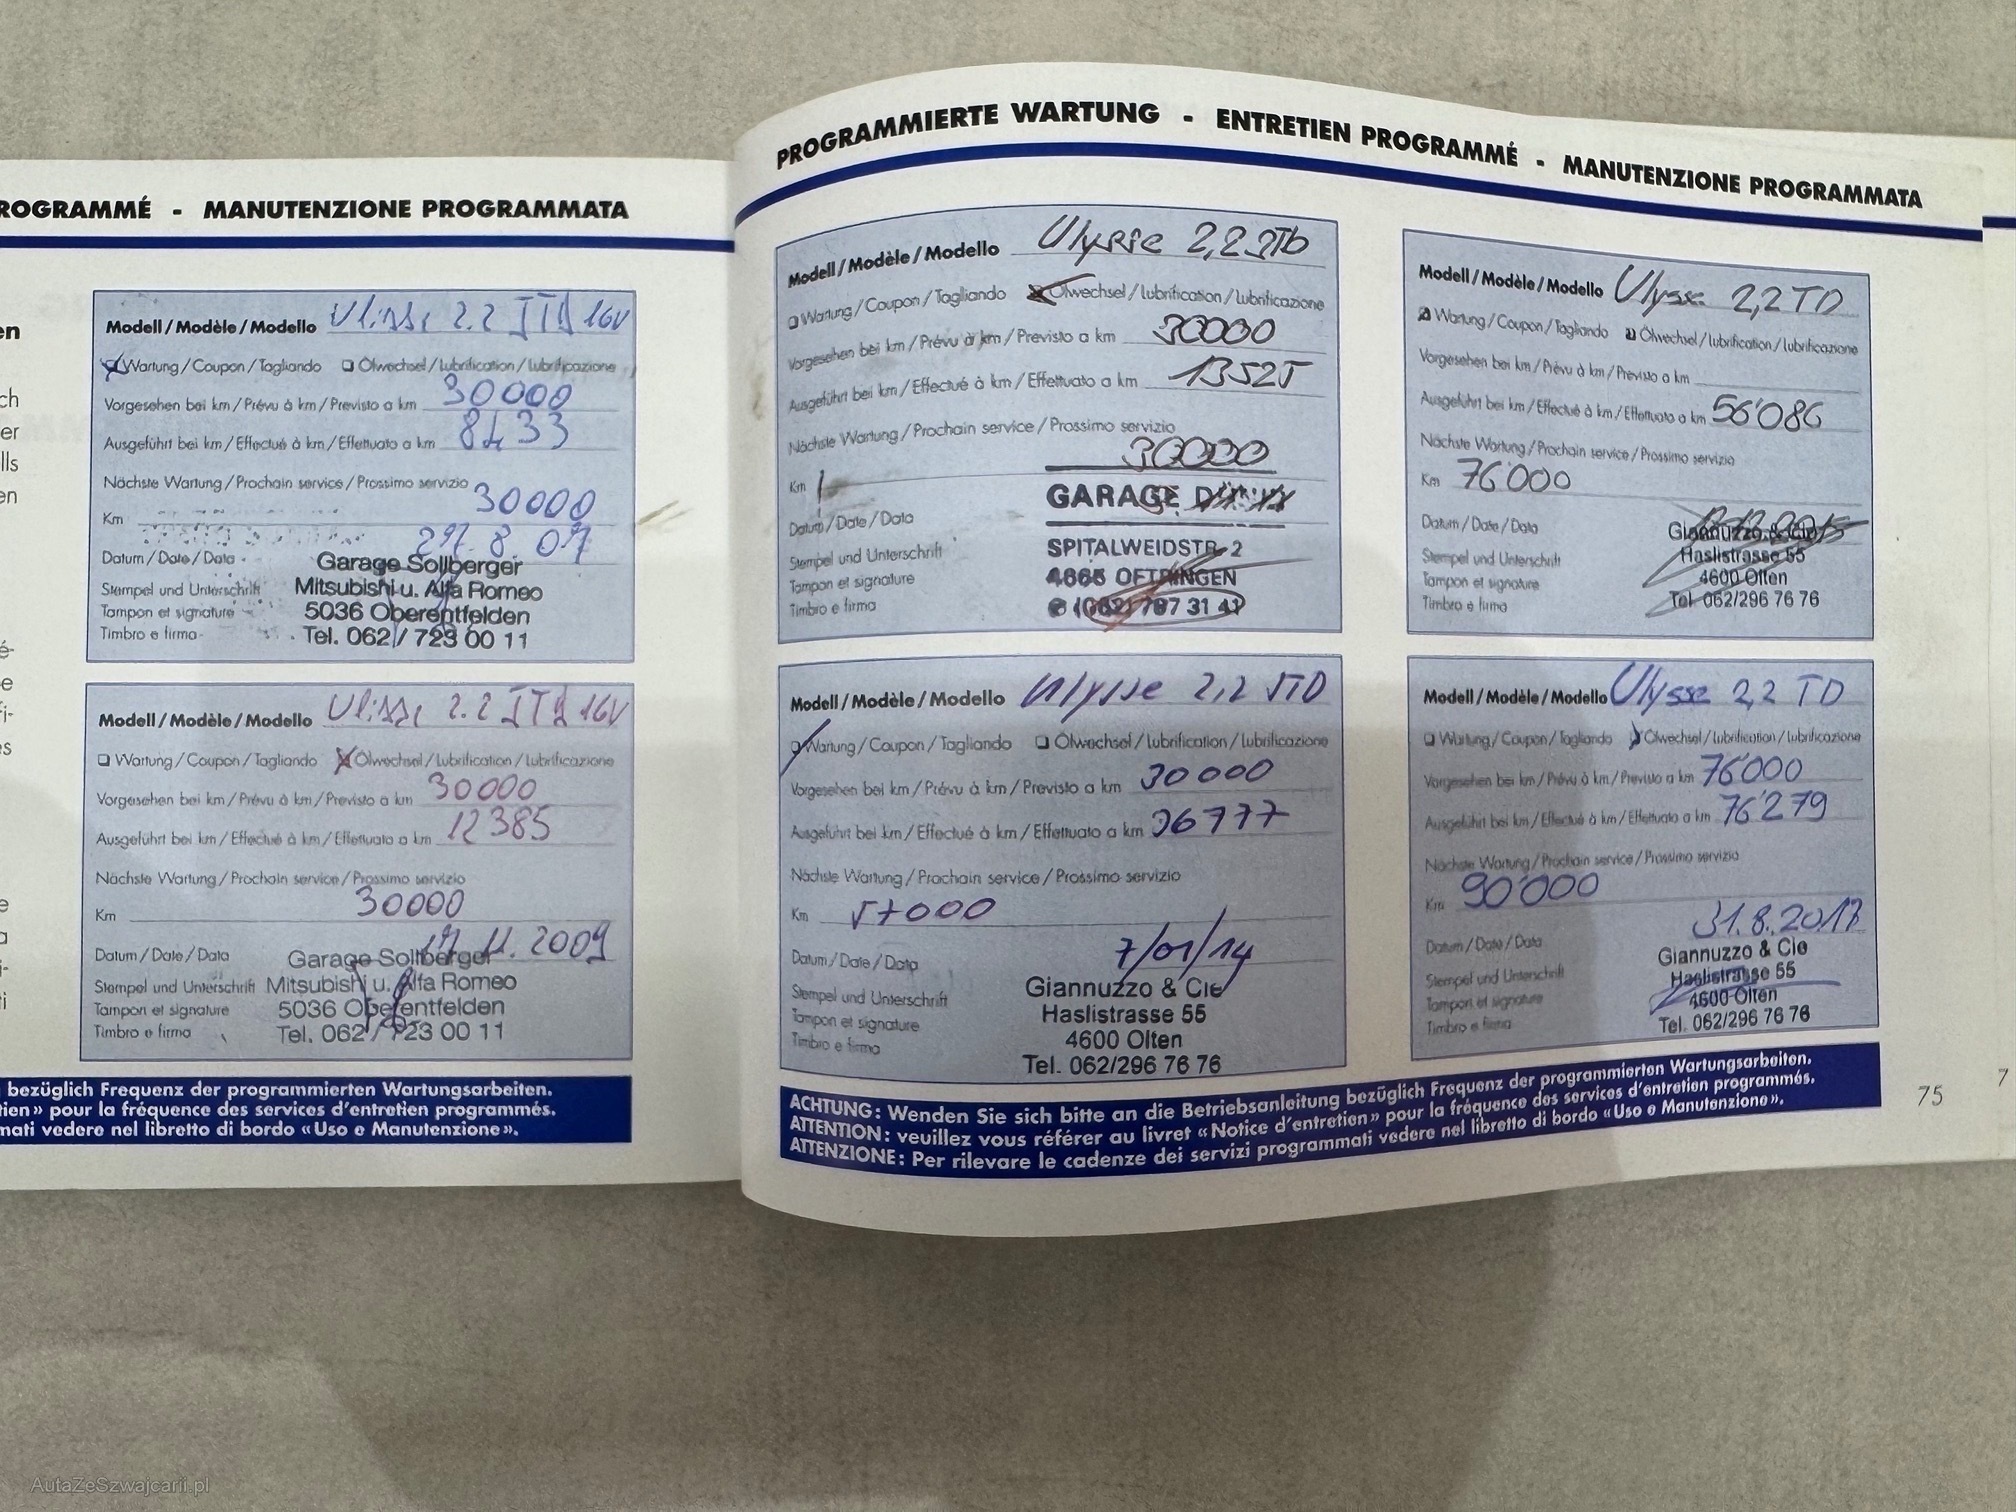 ROGRAMMÉ - MANUTENZIONE PROGRAMMATA
en
ch
er
lls
en
é-
e
fi-
es
e
a
i-
ti
Modell / Modèle / Modello Ulisse 2.2 JTD 16V
Wartung / Coupon / Tagliando Ölwechsel / Lubrification / Lubrificazione
Vorgesehen bei km / Prévu à km / Previsto a km 30000
Ausgeführt bei km / Effectué à km / Effettuato a km 8433
Nächste Wartung / Prochain service / Prossimo servizio
Km 30000
Datum / Date / Data 8.07
Stempel und Unterschrift
Tampon et signature
Timbro e firma
Garage Sollberger
Mitsubishi u. Alfa Romeo
5036 Oberentfelden
Tel. 062 / 723 00 11
Modell / Modèle / Modello Ulisse 2.2 JTD 16V
Wartung / Coupon / Tagliando Ölwechsel / Lubrification / Lubrificazione
Vorgesehen bei km / Prévu à km / Previsto a km 30000
Ausgeführt bei km / Effectué à km / Effettuato a km 12385
Nächste Wartung / Prochain service / Prossimo servizio
Km 30000
Datum / Date / Data 11.2009
Stempel und Unterschrift
Tampon et signature
Timbro e firma
Garage Sollberger
Mitsubishi u. Alfa Romeo
5036 Oberentfelden
Tel. 062 / 723 00 11
bezüglich Frequenz der programmierten Wartungsarbeiten.
tien» pour la fréquence des services d'entretien programmés.
mati vedere nel libretto di bordo «Uso e Manutenzione».
PROGRAMMIERTE WARTUNG - ENTRETIEN PROGRAMMÉ - MANUTENZIONE PROGRAMMATA
Modell / Modèle / Modello Ulysse 2,2 JTD
Wartung / Coupon / Tagliando Ölwechsel / Lubrification / Lubrificazione
Vorgesehen bei km / Prévu à km / Previsto a km 30000
Ausgeführt bei km / Effectué à km / Effettuato a km 13525
Nächste Wartung / Prochain service / Prossimo servizio
Km 30000
Datum / Date / Data
Stempel und Unterschrift
Tampon et signature
Timbro e firma
GARAGE
SPITALWEIDSTR. 2
4665 OFTRINGEN
(062) 797 31 41
Modell / Modèle / Modello Ulysse 2,2 TD
Wartung / Coupon / Tagliando Ölwechsel / Lubrification / Lubrificazione
Vorgesehen bei km / Prévu à km / Previsto a km
Ausgeführt bei km / Effectué à km / Effettuato a km 56'086
Nächste Wartung / Prochain service / Prossimo servizio
Km 76'000
Datum / Date / Data
Stempel und Unterschrift
Tampon et signature
Timbro e firma
Giannuzzo & Cie
Haslistrasse 55
4600 Olten
Tel. 062/296 76 76
Modell / Modèle / Modello Ulysse 2,2 JTD
Wartung / Coupon / Tagliando Ölwechsel / Lubrification / Lubrificazione
Vorgesehen bei km / Prévu à km / Previsto a km 30000
Ausgeführt bei km / Effectué à km / Effettuato a km 36777
Nächste Wartung / Prochain service / Prossimo servizio
Km 57000
Datum / Date / Data 7/01/14
Stempel und Unterschrift
Tampon et signature
Timbro e firma
Giannuzzo & Cie
Haslistrasse 55
4600 Olten
Tel. 062/296 76 76
Modell / Modèle / Modello Ulysse 2,2 TD
Wartung / Coupon / Tagliando Ölwechsel / Lubrification / Lubrificazione
Vorgesehen bei km / Prévu à km / Previsto a km 76'000
Ausgeführt bei km / Effectué à km / Effettuato a km 76'279
Nächste Wartung / Prochain service / Prossimo servizio
Km 90'000
Datum / Date / Data 31.8.2017
Stempel und Unterschrift
Tampon et signature
Timbro e firma
Giannuzzo & Cie
Haslistrasse 55
4600 Olten
Tel. 062/296 76 76
ACHTUNG: Wenden Sie sich bitte an die Betriebsanleitung bezüglich Frequenz der programmierten Wartungsarbeiten.
ATTENTION: veuillez vous référer au livret «Notice d'entretien» pour la fréquence des services d'entretien programmés.
ATTENZIONE: Per rilevare le cadenze dei servizi programmati vedere nel libretto di bordo «Uso e Manutenzione».
75
7
AutaZeSzwajcarii.pl